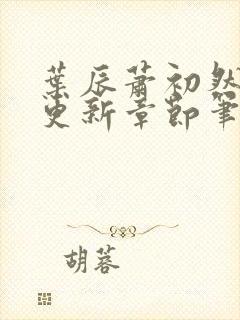 葉辰蕭初然
更新章節筆
胡蓉